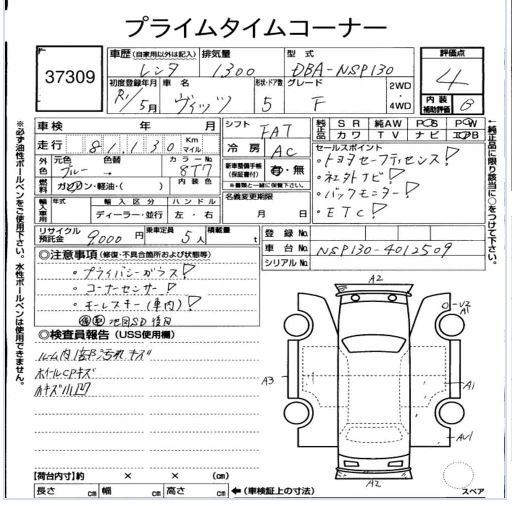 プライムタイムコーナー
37309
車歴(自家用以外は記入) 排気量 型式 評価点
レンタ 1300 DBA-NSP130 4
初度登録年月 車名 形状・ドア数 グレード 2WD・4WD
R1/5月 ヴィッツ 5 F
内装補助評価 B
車検 年 月 シフト FAT
純正品 SR 純AW PS PW
カワ TV ナビ エアB
走行 81,130 Km マイル 冷房 AC
セールスポイント
・トヨタセーフティセンス!
・社外ナビ!
・バックモニター!
・ETC!
外色 元色 色替 カラーNo
ブルー → 8T7
新車整備手帳(保証書付) 有・無
※書類と一緒に保管下さい。
燃料 ガソリン・軽油・( ) 内装色
名義変更期限
月 日
輸入車用 年式 輸入 ハンドル
ディーラー・並行 左・右
リサイクル預託金 9,000円 乗車定員 5人 積載量 t
登録No.
車台No. NSP130-4012509
シリアルNo.
◎注意事項(修復・不具合箇所および状態等)
・プライバシーガラス!
・コーナーセンサー!
・キーレスキー(車内)!
地図SD後日
◎検査員報告(USS使用欄)
ルーム内1部汚れキズ
ホイールCPキズ
小キズ小凹
A2
A1
A3
A1
A2
スペア
【荷台内寸】約 × × (cm)
長さ cm 幅 cm 高さ cm ←(車検証上の寸法)
※必ず油性ボールペンをご使用下さい。水性ボールペンは使用できません。
←純正品に限り該当に○をつけて下さい。